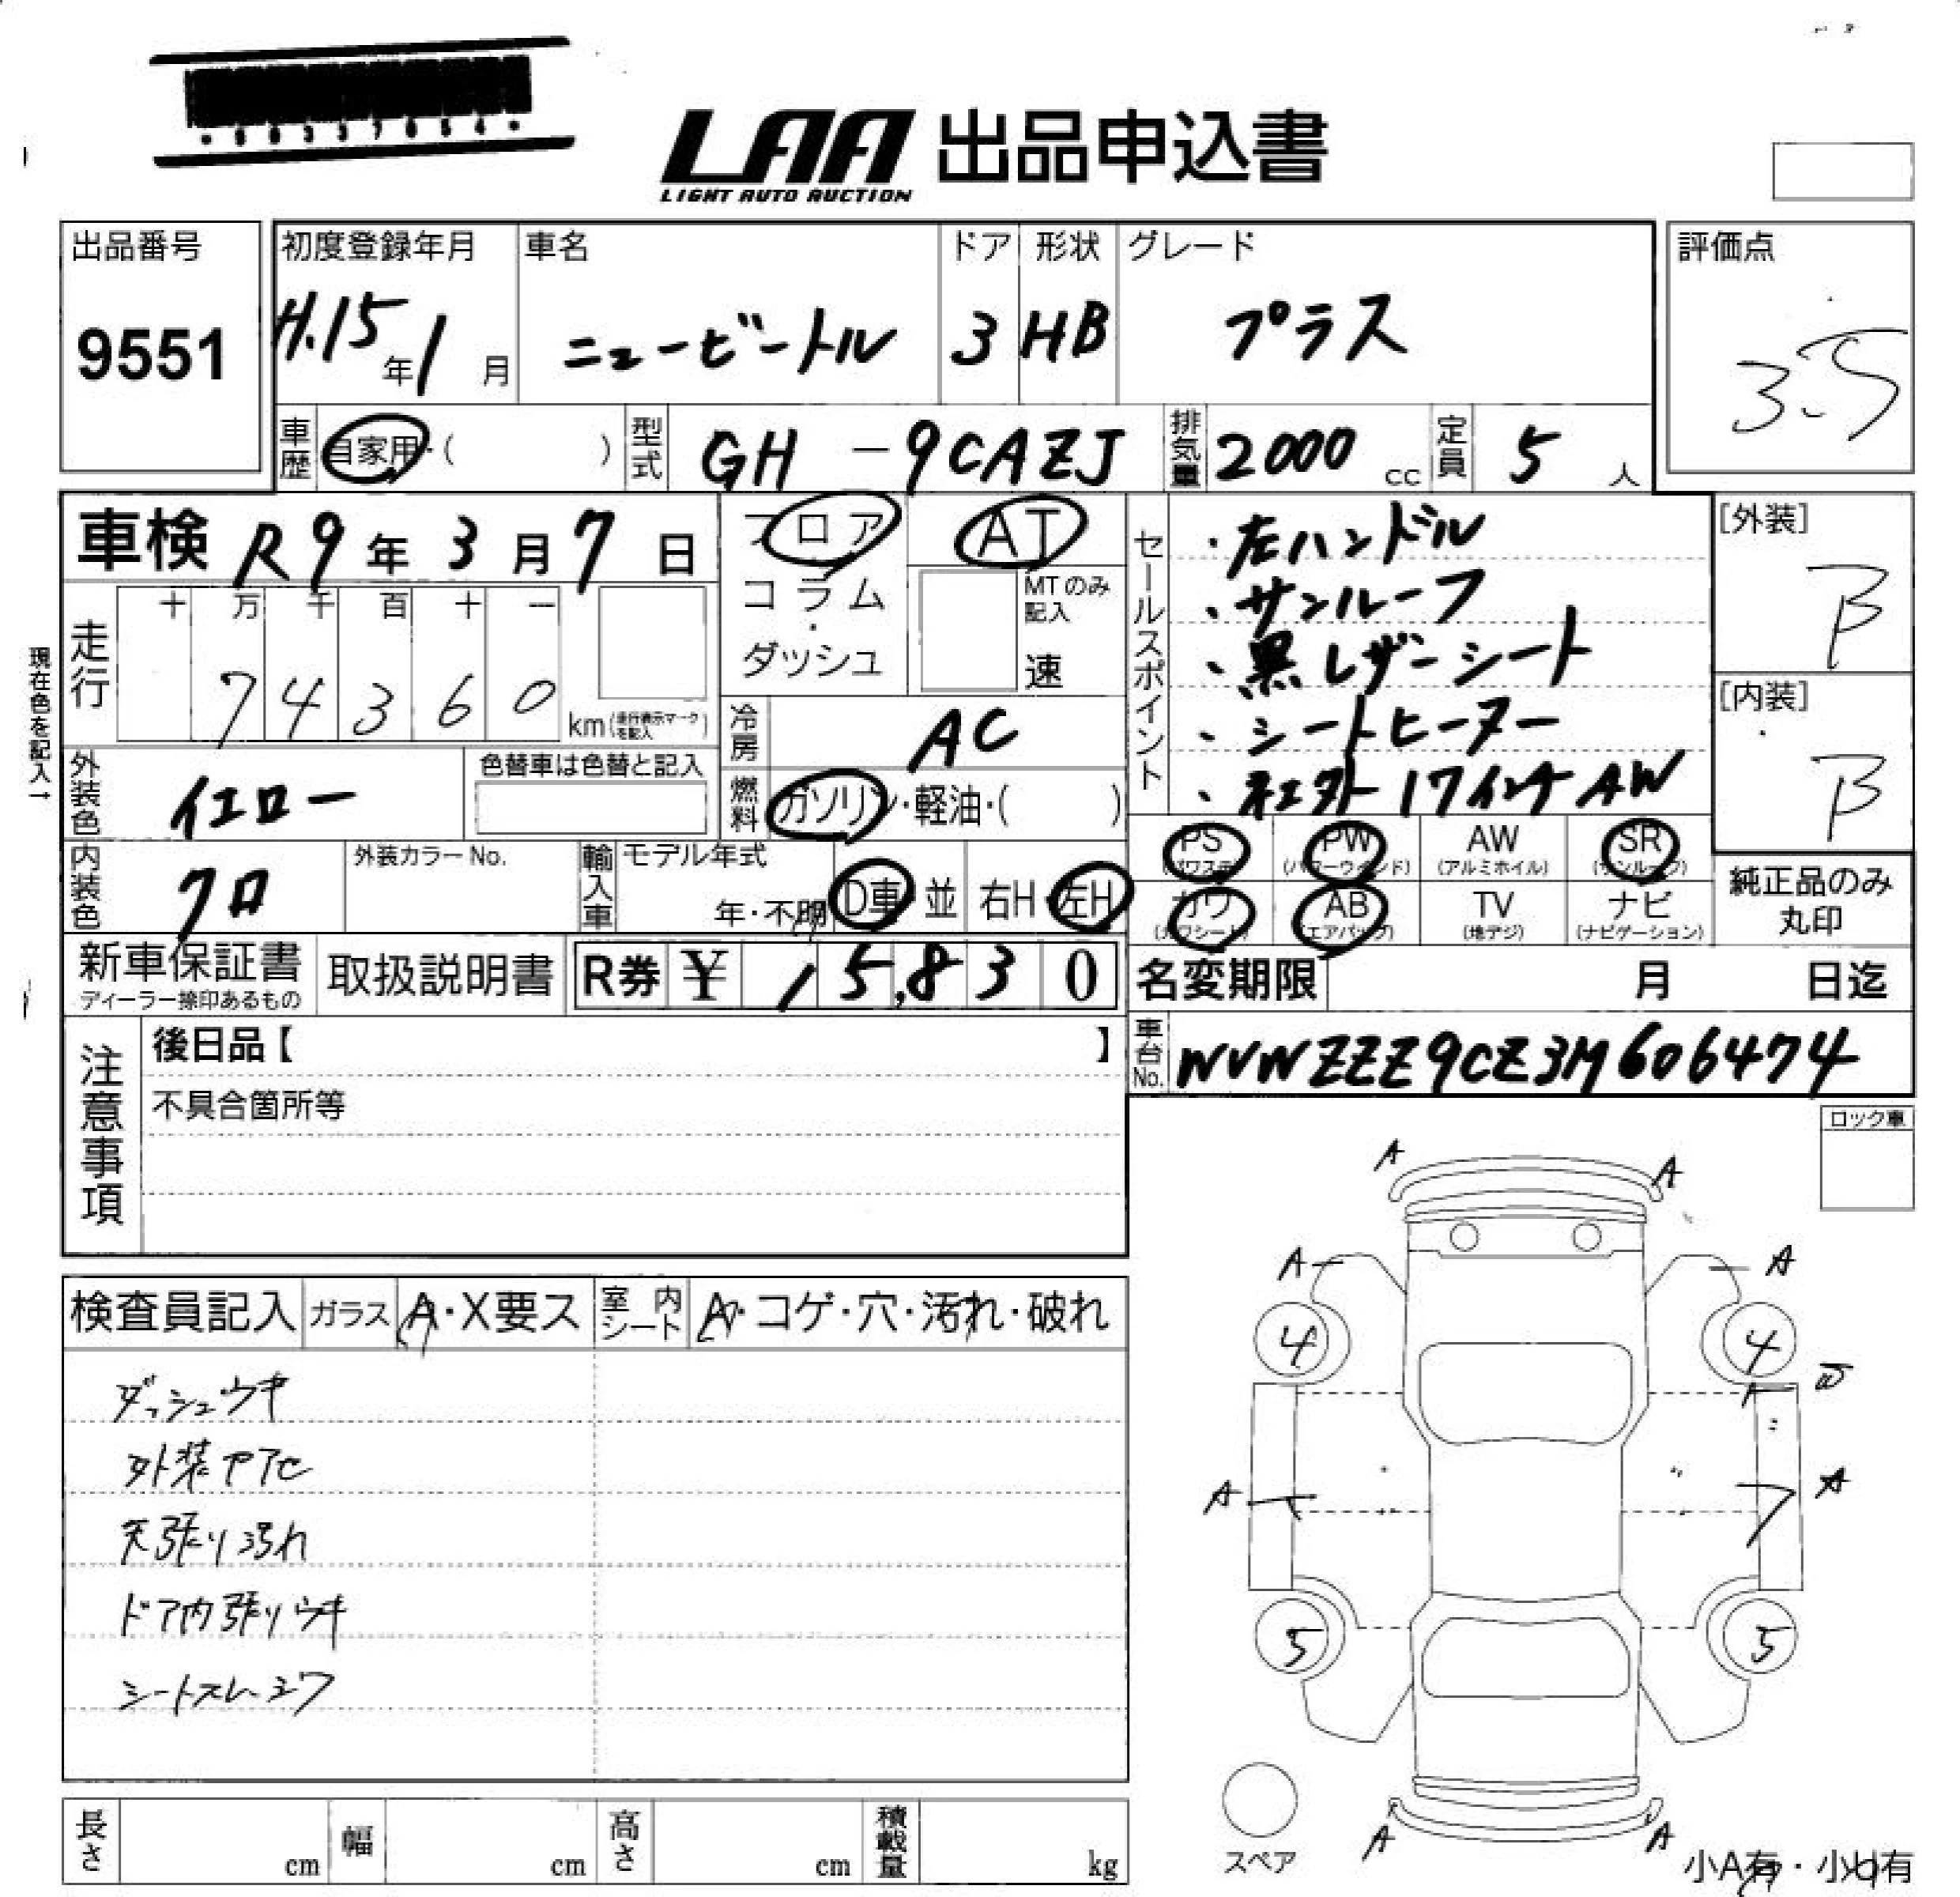 LAA 出品申込書
LIGHT AUTO AUCTION
出品番号
9551
初度登録年月
H.15年1月
車名
ニュービートル
ドア
3
形状
HB
グレード
プラス
評価点
3.5
車歴 自家用・( )
型式 GH-9CAZJ
排気量 2000 cc
定員 5 人
車検 R9年3月7日
フロア
コラム
・
ダッシュ
AT
MTのみ記入
速
セールスポイント
・左ハンドル
・サンルーフ
・黒レザーシート
・シートヒーター
・社外17インチAW
[外装]
B
[内装]
B
現在色を記入→
走行
十 万 千 百 十 一
7 4 3 6 0
km(走行表示マークを記入)
冷房 AC
外装色 イエロー
色替車は色替と記入
燃料 ガソリン・軽油・( )
PS (パワステ)
PW (パワーウインド)
AW (アルミホイル)
SR (サンルーフ)
カワ (カワシート)
AB (エアバッグ)
TV (地デジ)
ナビ (ナビゲーション)
純正品のみ
丸印
内装色 クロ
外装カラーNo.
輸入車
モデル年式
年・不明
D車・並
右H・左H
新車保証書
ディーラー捺印あるもの
取扱説明書
R券 ¥ 15,830
名変期限 月 日迄
車台No. WVWZZZ9CZ3M606474
注意事項
後日品【 】
不具合箇所等
ロック車
検査員記入
ガラス A・X要ス
室内シート A・コゲ・穴・汚れ・破れ
ダッシュウキ
外装ヤアセ
天張り汚れ
ドア内張りウキ
シートスレ・シワ
A
A
A
A
4
4
A
A
5
5
A
A
スペア
小A有・小U有
長さ cm
幅 cm
高さ cm
積載量 kg